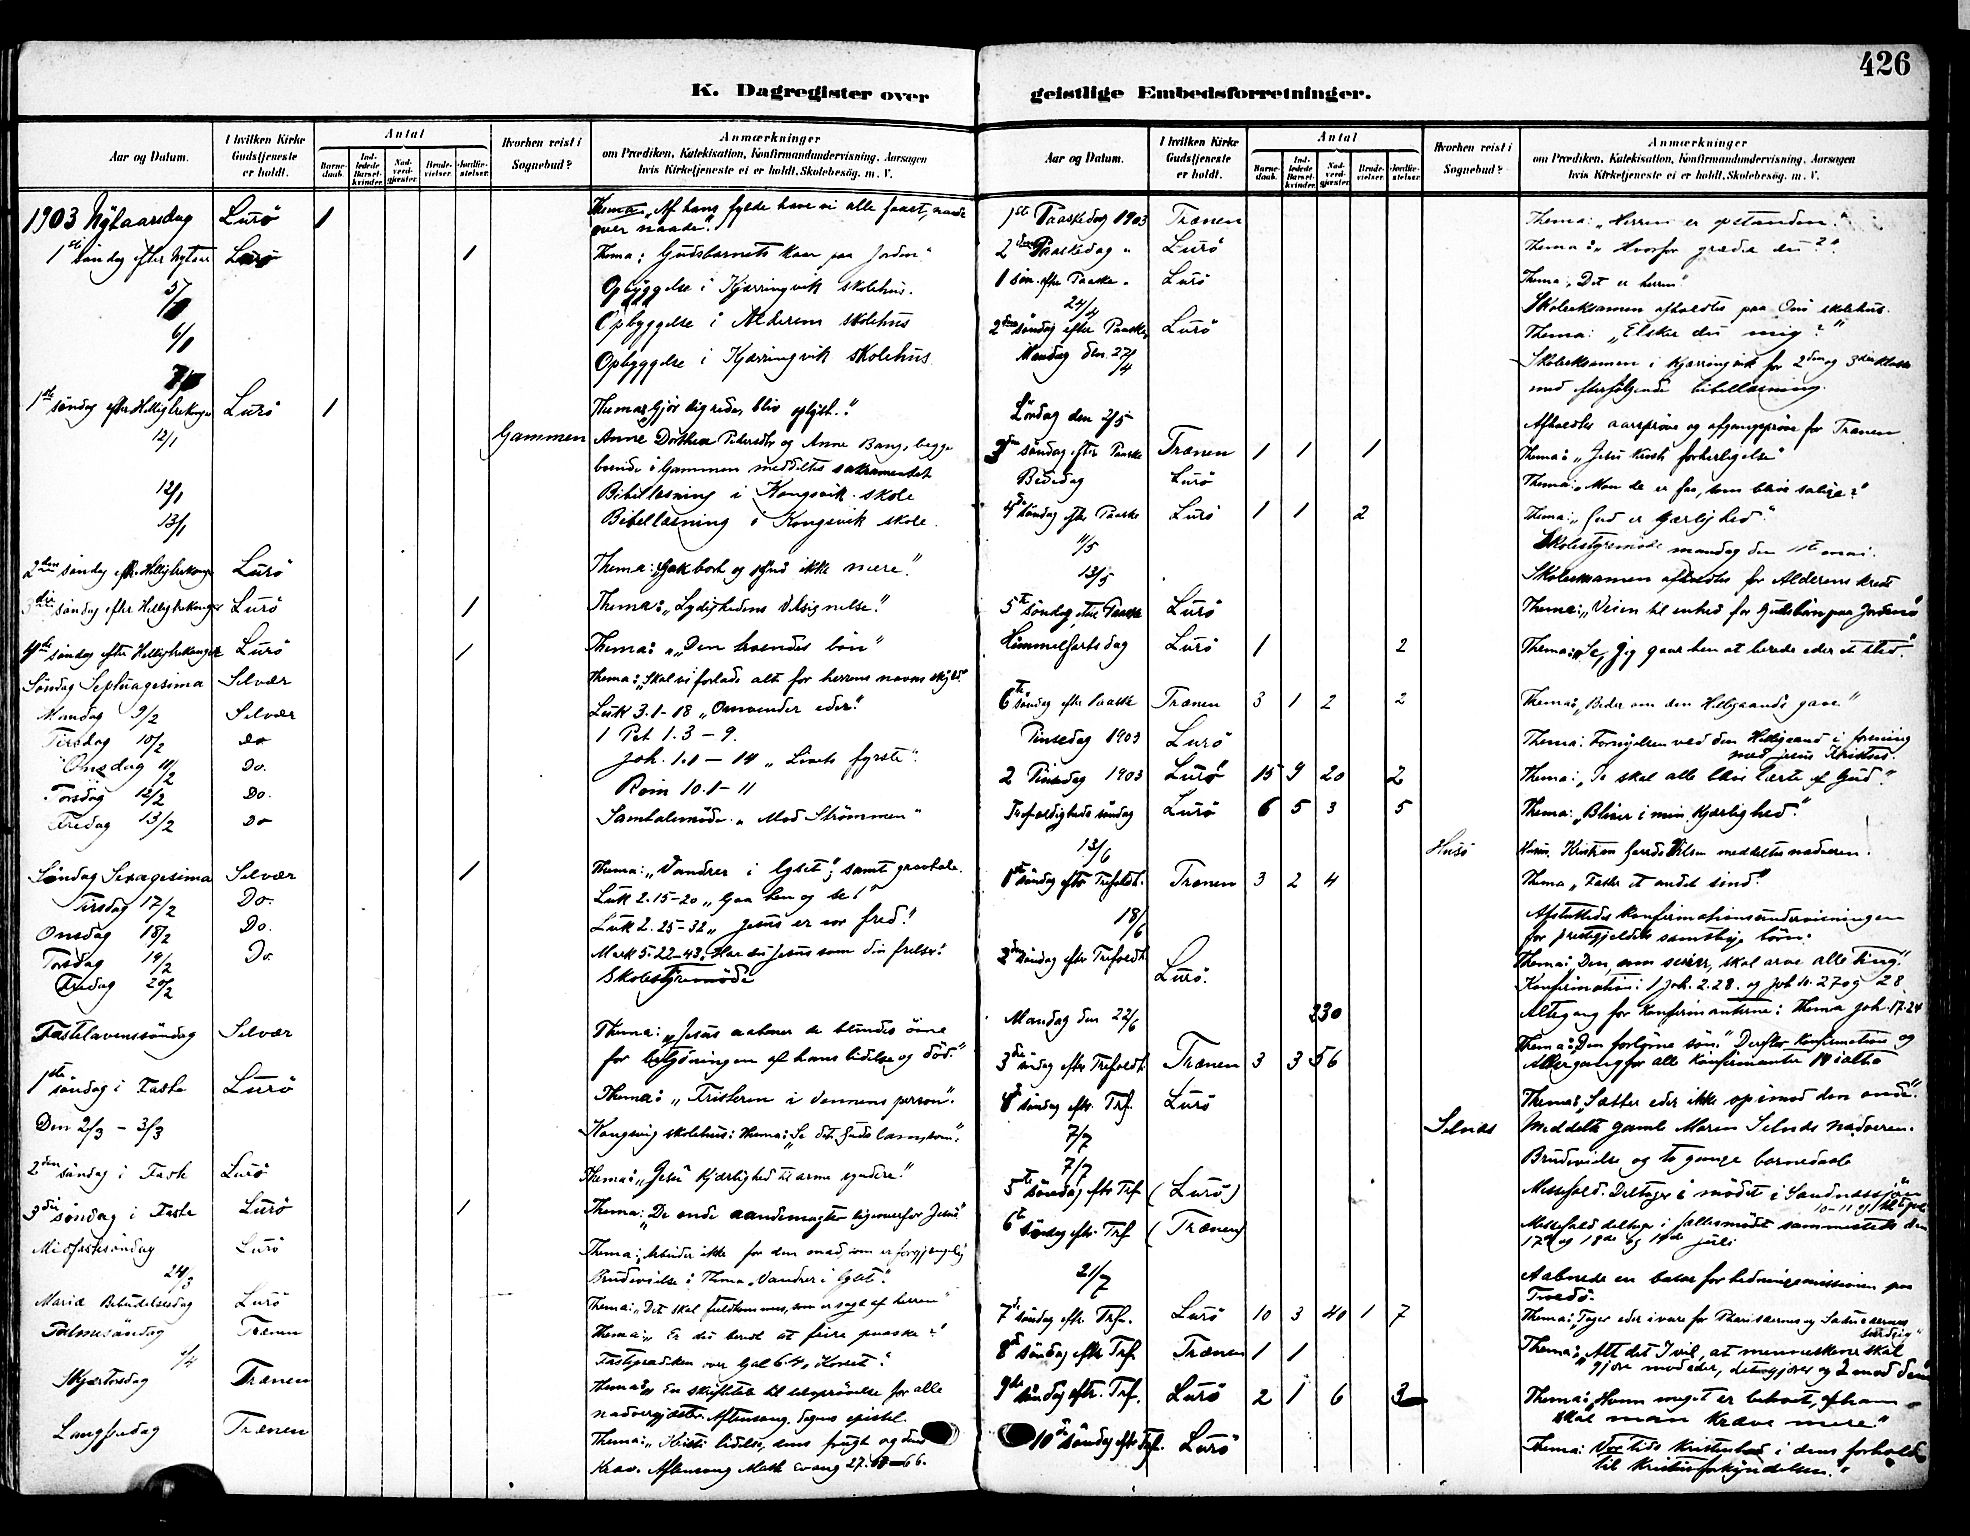 426
K. Dagregister over geistlige Embedsforretninger.
Aar og Datum.
I hvilken Kirke Gudstjeneste er holdt.
Antal
Barnedaab.
Indledede Barselkvinder.
Nadverdgjæster.
Brudevielser.
Jordfæstelser.
Hvorhen reist i Sognebud?
Anmærkninger
om Prædiken, Katekisation, Konfirmandundervisning, Aarsagen
hvis Kirketjeneste ei er holdt, Skolebesøg. m. V.
1903 Nytaarsdag Lurö 1 Thema: "Af hans fylde have vi alle faaet, naade
over naade."
1ste söndag efter Nytaar Lurö 1 Thema: Gudsbarnets kaar paa Jorden"
5/1 Opbyggelse i Kjærringvik skolehus.
6/1 Opbyggelse i Alderens skolehus
7/1 Opbyggelse i Kjærringvik skolehus.
1ste söndag efter Helligtrekonger Lurö 1 Thema: Gjör dig rede, bliv oplyst."
12/1 Gammen Anne Dorthea Petersdtr og Anne Bang, begge
boende i Gammen meddeltes sakramentet
12/1 Bibellæsning i Kongsvik skole
13/1 Bibellæsning i Kongsvik skole.
2den söndag eft. Helligtrekonger Lurö Thema: "Gak bort og synd ikke mere".
3die söndag efter Helligtrekonger Lurö 1 Thema: "Lydighedens velsignelse."
4de söndag efter Helligtrekonger Lurö 1 Thema: "Den troendes bön"
Söndag Septuagesima Selvær Thema: "Skal vi forlade alt for herrens navns skyld."
Mandag 9/2 Selvær Luk 3.1-18 "Omvender eder."
Tirsdag 10/2 do 1 Pet 1.3-9.
Onsdag 11/2 Do. Joh. 1.1-14 "Livets fyrste".
Torsdag 12/2 Do. Rom 10.1-11
Fredag 13/2 Do Samtalemöde. "Mod Strömmen"
Söndag Sexagesima Selvær 1 Thema: "Vandrer i lyset", samt gravtale.
Tirsdag 17/2 Do. Luk 2.15-20 "Gaa hen og se!"
Onsdag 18/2 Do. Luk 2.25-32 "Jesus er vor fred!
Torsdag 19/2 Do Mark 5.22-43. Har du Jesus som din frelser!
Fredag 20/2 Skolestyremöde
Fastelavenssöndag Selvær Thema: "Jesus aabner de blindes öine
for betydningen af hans lidelse og död."
1ste söndag i Faste Lurö Thema: "Fristeren i vennens person".
Den 2/3 - 3/3 Kongsvig skolehus: Thema: "Se det Guds lam
2den söndag i Faste Lurö Thema: "Jesu Kjærlighed til arme syndere!"
3die söndag i Faste Lurö 1 Thema: "De onde aandemagter ligeoverfor Jesus"
Midfastesöndag Lurö Thema: "Arbeider ikke for den mad som er forgjængelig
24/3 Brudevielse: Thema "Vandrer i lyset".
Mariæ Bebudelsesdag Lurö Thema: "Det skal fuldkommes, som er sagt af herren"
Palmesöndag Trænen Thema: "Er du beredt at feire paaske?"
1/4 Fastprædiken over Gal 6. "Korset".
Skjærtorsdag Trænen Thema: "En skriftetale til selvprövelse for alle
nadvergjæster. Aftensang. dagens epistel.
Langfredag Trænen Thema: "Kristi lidelse, dens frugt og dens
Krav. Aftensang Math Evang 27. -66.
1ste Paaskedag 1903 Trænen Thema: "Herren er opstanden."
2den Paaskedag " Lurö Thema: "Hvorfor græder du?"
1 sön. efter Paaske " Lurö Thema: "Det er herren".
24/4 Skoleeksamen afholdtes paa Onö skolehus.
2den söndag efter Paaske Lurö Thema: "Elsker du mig?"
Mandag den 27/4 Skoleeksamen i Kjærringvik for 2den og 3die klasse
med efterfölgende bibellæsning.
Lördag den 2/5 Afholdtes aarspröve og afgangspröve for Trænen
3die söndag efter Paaske Trænen 1 1 1 Thema: "Jesu Kristi forherligelse"
Bededag Lurö Thema: "Mon de er faa, som blive salige?"
4de söndag efter Paaske Lurö 1 1 2 Thema: "Gud er kjærlighed".
11/5 Skolestyremöde mandag den 11te mai.
13/5 Skoleeksamen afholdtes for Alderens kreds
5te söndag efter Paaske Lurö Thema: "Veien til enhed for Guds börn paa Jorden"
Himmelfartsdag Lurö 1 2 Thema: "Se, Jeg gaar hen at berede eder et sted."
6te söndag efter Paaske Trænen 3 1 2 2 Thema: "Beder om den Helligaands gave."
Pinsedag 1903 Lurö Thema: Fornyelsen ved den Helligaand i forening
med Jesus Kristus.
2 Pinsedag 1903 Lurö 15 9 20 2 Thema: "De skal alle blive lærte af Gud".
Trefoldigheds söndag Lurö 6 5 3 5 Thema: "Bliver i min Kjærlighed".
13/6 Husö Kristian Nilsen meddeltes nadveren.
1ste söndag efter Trefoldt. Trænen 3 2 4 Thema "Fatter et andet sind."
18/6 Afsluttedes konfirmationsundervisningen
for prestegjeldets samtlige börn.
2den söndag efter Trefoldt. Lurö. Thema: "Den, som seirer, skal arve alle ting."
Konfirmation: 1 Joh. 2.28. og Joh 10. 27 og 28
Mandag den 22/6 230 Altergang for Konfirmanterne: Thema Joh. 17.24
3die söndag efter Trefoldt. Trænen 3 3 56 Thema: "Den fortabte sön." Derefter Konfirmation og
Altergang for alle Konfirmanter ialt
4de söndag eft. Trf. Lurö Thema: "Sætter eder ikke op imod den onde".
7/7 Selnæs Meddelte gamle Maren Selnæs nadveren.
7/7 Brudevielse og to gange barnedaab
5te söndag eft. Trf (Lurö) Messefald. Deltager i mödet i Sandnessjöen
10-11 og 12te juli
6te söndag eft. Trf (Trænen) Messefald deltager i fællesmödet sammesteds den
17de og 18de og 19de juli
21/7 Aabnede en basar for hedningemissionen paa
7de söndag eft. Trf. Lurö 10 3 40 1 7 Thema: Tager eder i vare for Pharisæernes og Saducæernes
surdeig"
8de söndag efter Trf. Trænen 1 1 Thema: "Alt det I vil, at menneskene skal
gjöre mod eder, det og gjörer og I mod dem
9de söndag eft. Trf. Lurö 2 1 6 3 Thema: "Hvem meget er betroet, af ham
skal man kræve mere"
10de söndag eft. Trf. Lurö Thema: Vor Tids Kristenhed i dens forhold
til Kristusforkyndelsen."